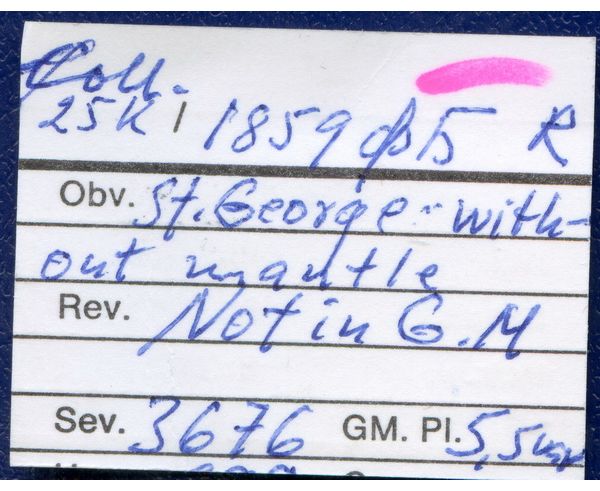 Coll.
25K 1859 фБ R
Obv. St. George - with-
out mantle
Rev. Not in G.M
Sev. 3676 GM. Pl. 5,5